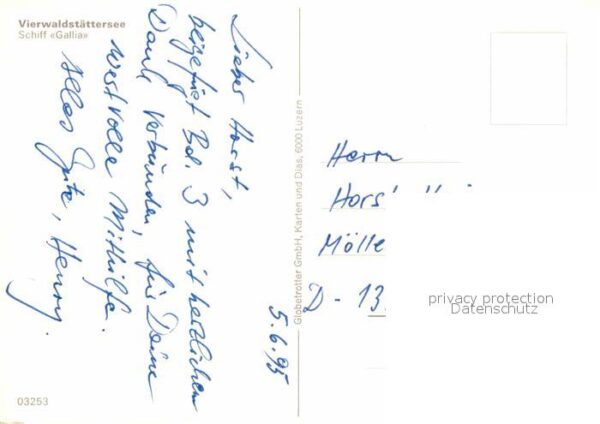 Vierwaldstättersee
Schiff «Gallia»
Lieber Horst,
beigefügt Bd. 3 mit herzlichem
Dank verbunden für Deine
wertvolle Mithilfe.
Alles Gute, Henry.
5.6.95
03253
Globetrotter GmbH, Karten und Dias, 6000 Luzern
Herrn
Hors
Mölle
D - 13
privacy protection
Datenschutz